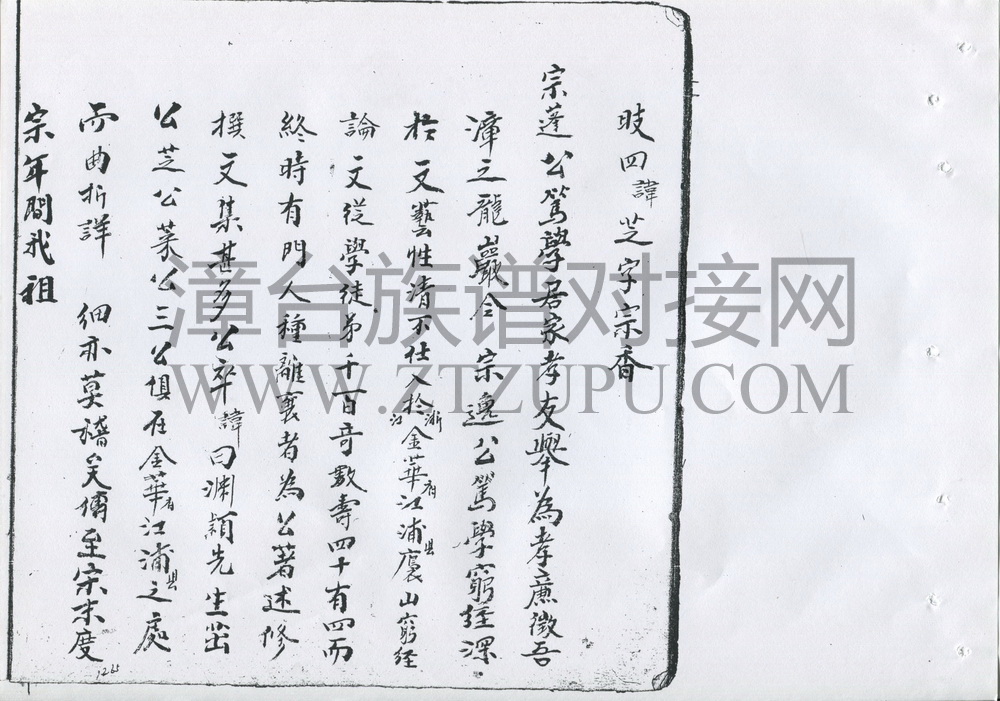 肢四諱芝字宗香
宗蓬公篤學居家孝友舉為孝廉徵吾
漳之龍巖令 宗逸公篤學窮經深
於文藝性清不仕入於浙江金華府江浦縣山窮經
論文從學徒弟千百奇數壽四十有四而
終時有門人種離襄者為公著述修
撰文集甚多公卒諱曰渊穎先生茁
公芝公菜公三公俱在金華府江浦縣之處
而曲折詳 細亦莫稽矣傳至宗末度
宗年間我祖
漳台族谱对接网
WWW.ZTZUPU.COM